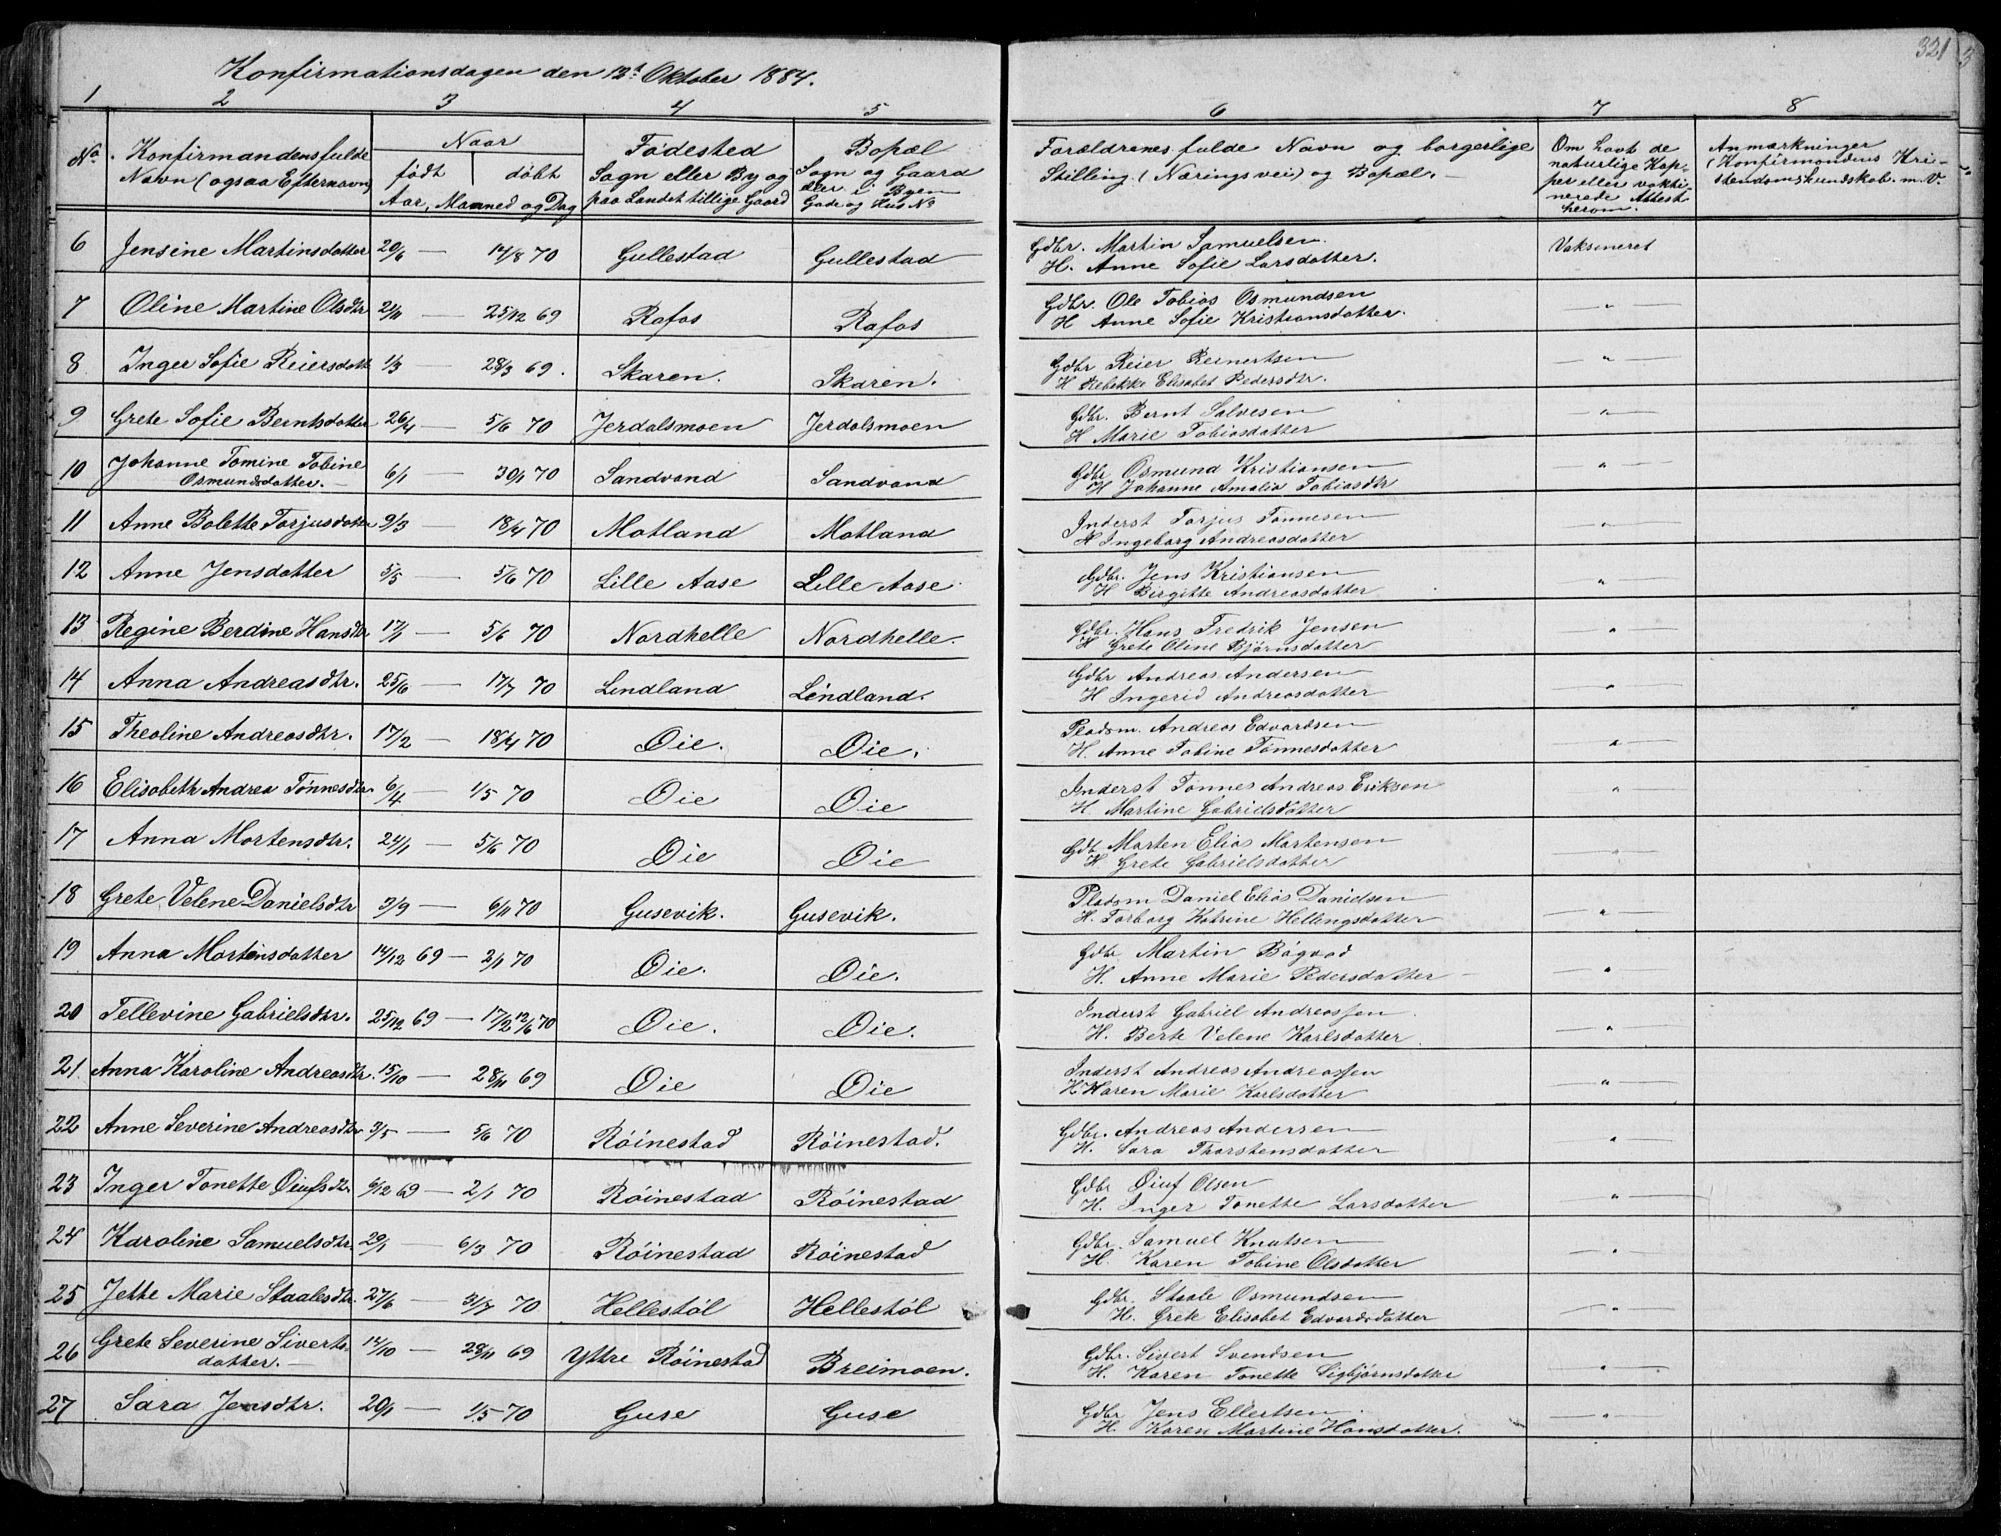 321
Konfirmationsdagen den 12t Oktober 1884.
1 2 3 4 5 6 7 8
No. Konfirmandens fulde Navn (ogsaa Efternavn)
Naar
født døbt
Aar, Maaned og Dag
Fødested
Sogn eller By og
paa Landet tillige Gaard
Bopæl
Sogn og Gaard
eller i Byen
Gade og Hus No
Forældrenes fulde Navn og borgerlige
Stilling (Næringsvei) og Bopæl.
Om havt de
naturlige Kop-
per eller vakti-
nerede Attest
herom.
Anmærkninger
(Konfirmandens Kri-
stendomskundskab. m. V.
6 Jensine Martinsdatter 20/6 — 14/8 70 Gullestad Gullestad Gdbr. Martin Samuelsen. Vaksineret
H. Anne Sofie Larsdatter.
7 Oline Martine Olsdtr 2/11 — 25/12 69 Rafos Rafos Gdbr. Ole Tobias Osmundsen — " —
H Anne Sofie Kristiansdatter.
8 Inger Sofie Reiersdatt 1/3 — 28/3 69. Skaren. Skaren. Gdbr Reier Reinertsen — " —
H Rebekke Elisabet Pedersdtr.
9 Grete Sofie Berntsdatter 26/4 — 5/6 70 Jerdalsmoen Jerdalsmoen Gdbr. Bernt Salvesen — " —
H Marie Tobiasdatter
10 Johanne Tomine Tobine 6/1 — 30/1 70 Sandvand Sandvand Gdbr Osmund Kristiansen " —
Osmundsdatter. — H Johanne Amalia Tobiasdtr
11 Anne Bolette Torjusdatter 9/3 — 18/4 70 Motland Motland Inderst Torjus Tønnesen — " —
H Ingeborg Andreasdatter
12 Anne Jensdatter 5/5 — 5/6 70 Lille Aase Lille Aase Gdbr. Jens Kristiansen — " —
H Birgitte Andreasdatter
13 Regine Berdine Hansdtr 17/1 — 5/6 70 Nordhelle Nordhelle. Gdbr. Hans Fredrik Jensen — " —
H Grete Oline Bjørnsdatter
14 Anna Andreasdtr. 25/6 — 17/7 70 Lendland Lendland. Gdbr Andreas Andersen — " —
H Ingerid Andreasdatter
15 Theoline Andreasdtr. 17/2 — 18/4 70 Øie. Øie. Pladsm. Andreas Edvardsen — " —
H. Anne Tobine Tønnesdatter
16 Elisabeth Andrea Tønnesdtr. 6/4 — 1/5 70 Øie Øie Inderst Tønnes Andreas Eriksen — " —
H. Martine Gabrielsdatter
17 Anna Mortensdtr. 24/1 — 5/6 70 Øie Øie Gdb Morten Elias Mortensen — " —
H. Grete Gabrielsdatter
18 Grete Velene Danielsdtr 3/9 — 6/11 70 Gusevik. Gusevik. Pladsm Daniel Elias Danielsen — " —
H. Torborg Katrine Hellengsdatter
19 Anna Mortensdatter 14/12 69 — 2/1 70 Øie. Øie. Gdbr Martin Bøgvad "
H. Anne Marie Pedersdatter
20 Tellevine Gabrielsdtr. 25/12 69 — 17/2 12/6 70 Øie. Øie. Inderst Gabriel Andreassen — " —
H. Berte Velene Karlsdatter
21 Anna Karoline Andreasdtr. 15/10 — 28/11 69 Øie Øie Inderst Andreas Andreassen " —
H Karen Marie Karlsdatter
22 Anne Severine Andreasdtr 3/5 — 5/6 70 Röinestad Röinestad. Gdbr. Andreas Andersen "
H. Sara Thorstensdatter
23 Inger Tonette Øiufsdtr 6/12 69 — 2/1 70 Röinestad Röinestad Gdbr Øiuf Olsen "
H. Inger Tonette Larsdatter
24 Karoline Samuelsdtr. 29/1 — 6/3 70 Röinestad Röinestad Gdbr. Samuel Knutsen "
H. Karen Tobine Olsdatter
25 Jette Marie Staalesdtr. 27/6 — 31/7 70 Hellestöl Hellestöl Gdbr. Staale Osmundsen "
H. Grete Elisabet Edvardsdatter
26 Grete Severine Siverts- 14/10 — 28/11 69 Yttre Röinestad Breimoen. Gdbr. Sivert Svendsen — " —
datter. — H. Karen Tonette Sigbjørnsdatter
27 Sara Jensdtr. 20/1 — 1/5 70 Guse Guse Gdbr Jens Ellertsen — " —
H. Karen Martine Hansdatter.